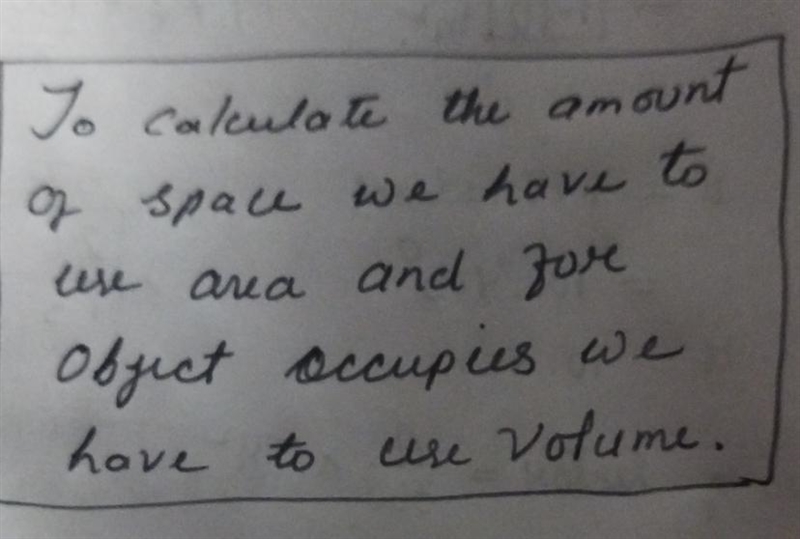 To calculate the amount
of space we have to
use area and for
Object occupies we
have to use volume.